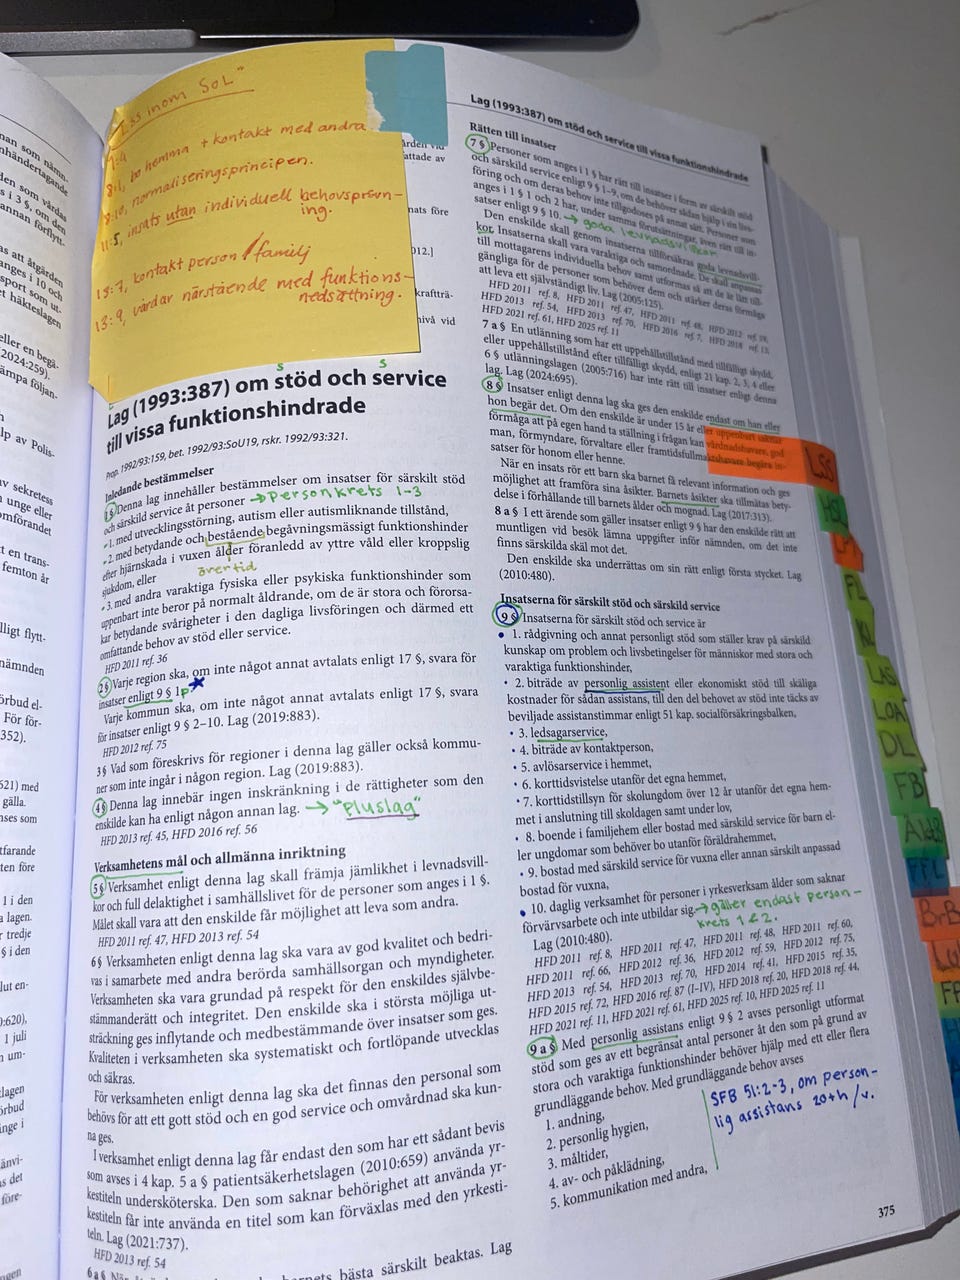 "Lss inom SoL"
bo hemma + kontakt med andra
normaliseringsprincipen.
11:5, insats utan individuell behovsprövn-
ing.
13:7, kontakt person / familj
13:9, vårdar närstående med funktions-
nedsättning.
S S
Lag (1993:387) om stöd och service
till vissa funktionshindrade
Prop. 1992/93:159, bet. 1992/93:SoU19, rskr. 1992/93:321.
Inledande bestämmelser
1 § Denna lag innehåller bestämmelser om insatser för särskilt stöd
och särskild service åt personer → personkrets 1-3
1. med utvecklingsstörning, autism eller autismliknande tillstånd,
2. med betydande och bestående begåvningsmässigt funktionshinder
efter hjärnskada i vuxen ålder föranledd av yttre våld eller kroppslig
sjukdom, eller över tid
3. med andra varaktiga fysiska eller psykiska funktionshinder som
uppenbart inte beror på normalt åldrande, om de är stora och förorsa-
kar betydande svårigheter i den dagliga livsföringen och därmed ett
omfattande behov av stöd eller service.
HFD 2011 ref. 36
2 § Varje region ska, om inte något annat avtalats enligt 17 §, svara för
insatser enligt 9 § 1 p
Varje kommun ska, om inte något annat avtalats enligt 17 §, svara
för insatser enligt 9 § 2–10. Lag (2019:883).
HFD 2012 ref. 75
3 § Vad som föreskrivs för regioner i denna lag gäller också kommu-
ner som inte ingår i någon region. Lag (2019:883).
4 § Denna lag innebär ingen inskränkning i de rättigheter som den
enskilde kan ha enligt någon annan lag. → "Pluslag"
HFD 2013 ref. 45, HFD 2016 ref. 56
Verksamhetens mål och allmänna inriktning
5 § Verksamhet enligt denna lag skall främja jämlikhet i levnadsvill-
kor och full delaktighet i samhällslivet för de personer som anges i 1 §.
Målet skall vara att den enskilde får möjlighet att leva som andra.
HFD 2011 ref. 47, HFD 2013 ref. 54
6 § Verksamheten enligt denna lag ska vara av god kvalitet och bedri-
vas i samarbete med andra berörda samhällsorgan och myndigheter.
Verksamheten ska vara grundad på respekt för den enskildes självbe-
stämmanderätt och integritet. Den enskilde ska i största möjliga ut-
sträckning ges inflytande och medbestämmande över insatser som ges.
Kvaliteten i verksamheten ska systematiskt och fortlöpande utvecklas
och säkras.
För verksamheten enligt denna lag ska det finnas den personal som
behövs för att ett gott stöd och en god service och omvårdnad ska kun-
na ges.
I verksamhet enligt denna lag får endast den som har ett sådant bevis
som avses i 4 kap. 5 a § patientsäkerhetslagen (2010:659) använda yr-
kestiteln undersköterska. Den som saknar behörighet att använda yr-
kestiteln får inte använda en titel som kan förväxlas med den yrkesti-
teln. Lag (2021:737).
HFD 2013 ref. 54
bästa särskilt beaktas. Lag
Lag (1993:387) om stöd och service till vissa funktionshindrade
Rätten till insatser
7 § Personer som anges i 1 § har rätt till insatser i form av särskilt stöd
och särskild service enligt 9 § 1–9, om de behöver sådan hjälp i sin livs-
föring och om deras behov inte tillgodoses på annat sätt. Personer som
anges i 1 § 1 och 2 har, under samma förutsättningar, även rätt till in-
satser enligt 9 § 10. → goda levnadsvillkor
Den enskilde skall genom insatserna tillförsäkras goda levnadsvill-
kor. Insatserna skall vara varaktiga och samordnade. De skall anpassas
till mottagarens individuella behov samt utformas så att de är lätt till-
gängliga för de personer som behöver dem och stärker deras förmåga
att leva ett självständigt liv. Lag (2005:125).
HFD 2011 ref. 8, HFD 2011 ref. 47, HFD 2011 ref. 48,
HFD 2013 ref. 54, HFD 2013 ref. 70, HFD 2016 ref. 7,
HFD 2021 ref. 61, HFD 2025 ref. 11
7 a § En utlänning som har ett uppehållstillstånd med tillfälligt skydd,
eller uppehållstillstånd efter tillfälligt skydd, enligt 21 kap. 2, 3, 4 eller
6 § utlänningslagen (2005:716) har inte rätt till insatser enligt denna
lag. Lag (2024:695).
8 § Insatser enligt denna lag ska ges den enskilde endast om han eller
hon begär det. Om den enskilde är under 15 år eller uppenbart saknar
förmåga att på egen hand ta ställning i frågan kan vårdnadshavare, god
man, förmyndare, förvaltare eller framtidsfullmaktshavare begära in-
satser för honom eller henne.
När en insats rör ett barn ska barnet få relevant information och ges
möjlighet att framföra sina åsikter. Barnets åsikter ska tillmätas bety-
delse i förhållande till barnets ålder och mognad. Lag (2017:313).
8 a § I ett ärende som gäller insatser enligt 9 § har den enskilde rätt att
muntligen vid besök lämna uppgifter inför nämnden, om det inte
finns särskilda skäl mot det.
Den enskilde ska underrättas om sin rätt enligt första stycket. Lag
(2010:480).
Insatserna för särskilt stöd och särskild service
9 § Insatserna för särskilt stöd och särskild service är
1. rådgivning och annat personligt stöd som ställer krav på särskild
kunskap om problem och livsbetingelser för människor med stora och
varaktiga funktionshinder,
2. biträde av personlig assistent eller ekonomiskt stöd till skäliga
kostnader för sådan assistans, till den del behovet av stöd inte täcks av
beviljade assistanstimmar enligt 51 kap. socialförsäkringsbalken,
3. ledsagarservice,
4. biträde av kontaktperson,
5. avlösarservice i hemmet,
6. korttidsvistelse utanför det egna hemmet,
7. korttidstillsyn för skolungdom över 12 år utanför det egna hem-
met i anslutning till skoldagen samt under lov,
8. boende i familjehem eller bostad med särskild service för barn el-
ler ungdomar som behöver bo utanför föräldrahemmet,
9. bostad med särskild service för vuxna eller annan särskilt anpassad
bostad för vuxna,
10. daglig verksamhet för personer i yrkesverksam ålder som saknar
förvärvsarbete och inte utbildar sig. → gäller endast person-
krets 1 & 2.
Lag (2010:480).
HFD 2011 ref. 8, HFD 2011 ref. 47, HFD 2011 ref. 48, HFD 2011 ref. 60,
HFD 2011 ref. 66, HFD 2012 ref. 36, HFD 2012 ref. 59, HFD 2012 ref. 75,
HFD 2013 ref. 54, HFD 2013 ref. 70, HFD 2014 ref. 41, HFD 2015 ref. 35,
HFD 2015 ref. 72, HFD 2016 ref. 87 (I–IV), HFD 2018 ref. 20, HFD 2018 ref. 44,
HFD 2021 ref. 11, HFD 2021 ref. 61, HFD 2025 ref. 10, HFD 2025 ref. 11
9 a § Med personlig assistans enligt 9 § 2 avses personligt utformat
stöd som ges av ett begränsat antal personer åt den som på grund av
stora och varaktiga funktionshinder behöver hjälp med ett eller flera
grundläggande behov. Med grundläggande behov avses
1. andning,
2. personlig hygien,
3. måltider,
4. av- och påklädning,
5. kommunikation med andra,
SFB 51:2-3, om person-
lig assistans 20+h/v.
375
LSS
HSL
FL
KL
LAS
LOA
DL
FB
ÄktB
FFL
BrB